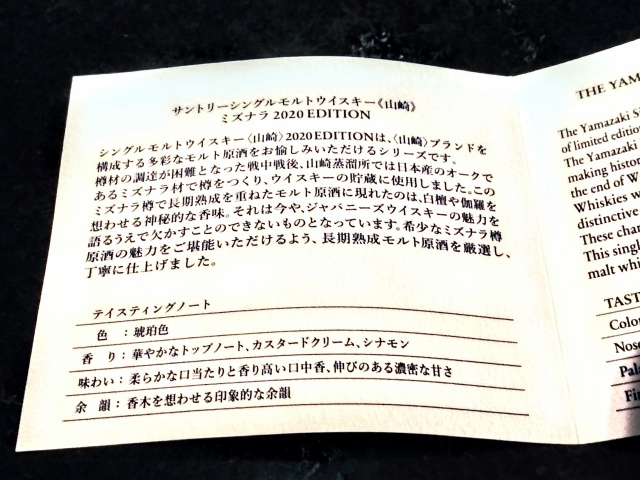 サントリーシングルモルトウイスキー《山崎》
ミズナラ 2020 EDITION
シングルモルトウイスキー〈山崎〉2020 EDITIONは、〈山崎〉ブランドを
構成する多彩なモルト原酒をお愉しみいただけるシリーズです。
樽材の調達が困難となった戦中戦後、山崎蒸溜所では日本産のオークで
あるミズナラ材で樽をつくり、ウイスキーの貯蔵に使用しました。この
ミズナラ樽で長期熟成を重ねたモルト原酒に現れたのは、白檀や伽羅を
想わせる神秘的な香味。それは今や、ジャパニーズウイスキーの魅力を
語るうえで欠かすことのできないものとなっています。希少なミズナラ樽
原酒の魅力をご堪能いただけるよう、長期熟成モルト原酒を厳選し、
丁寧に仕上げました。
テイスティングノート
色 ：琥珀色
香 り：華やかなトップノート、カスタードクリーム、シナモン
味わい：柔らかな口当たりと香り高い口中香、伸びのある濃密な甘さ
余 韻：香木を想わせる印象的な余韻
THE YAMA
The Yamazaki S
of limited edition
The Yamazaki
making histor
the end of W
Whiskies w
distinctive
These char
This singl
malt whi
TAST
Colo
Nose
Pala
Fi